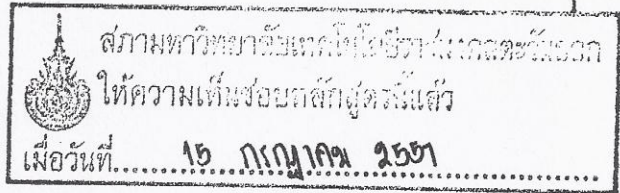 สภามหาวิทยาลัยเทคโนโลยีราชมงคลตะวันออก
ให้ความเห็นชอบหลักสูตรนี้แล้ว
เมื่อวันที่..........15 กรกฎาคม 2551..........